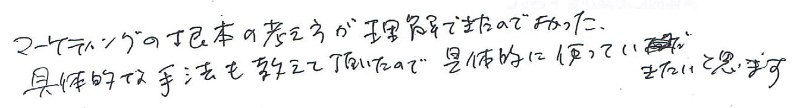 マーケティングの根本の考え方が理解できたのでよかった、
具体的な手法も教えて頂いたので具体的に使ってい
きたいと思います